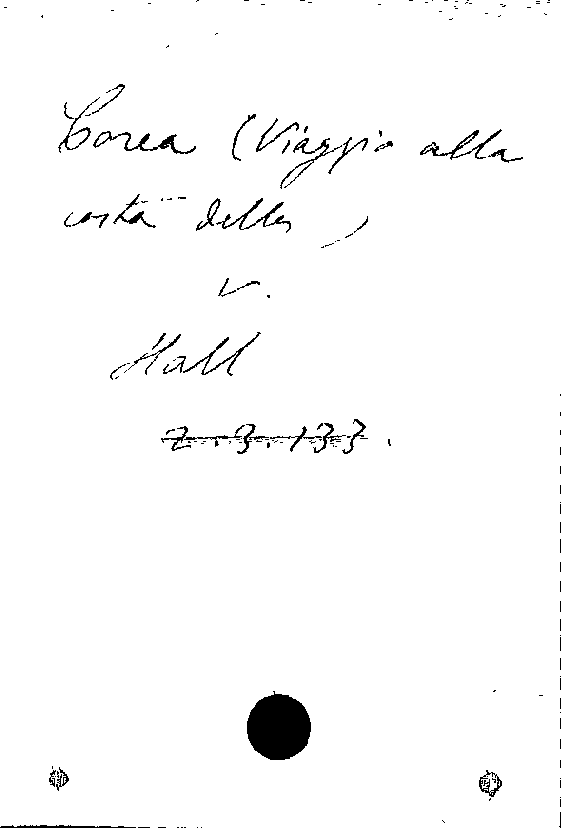 Corea (Viaggio alla
costa della)
v.
Hall
2.3.133.